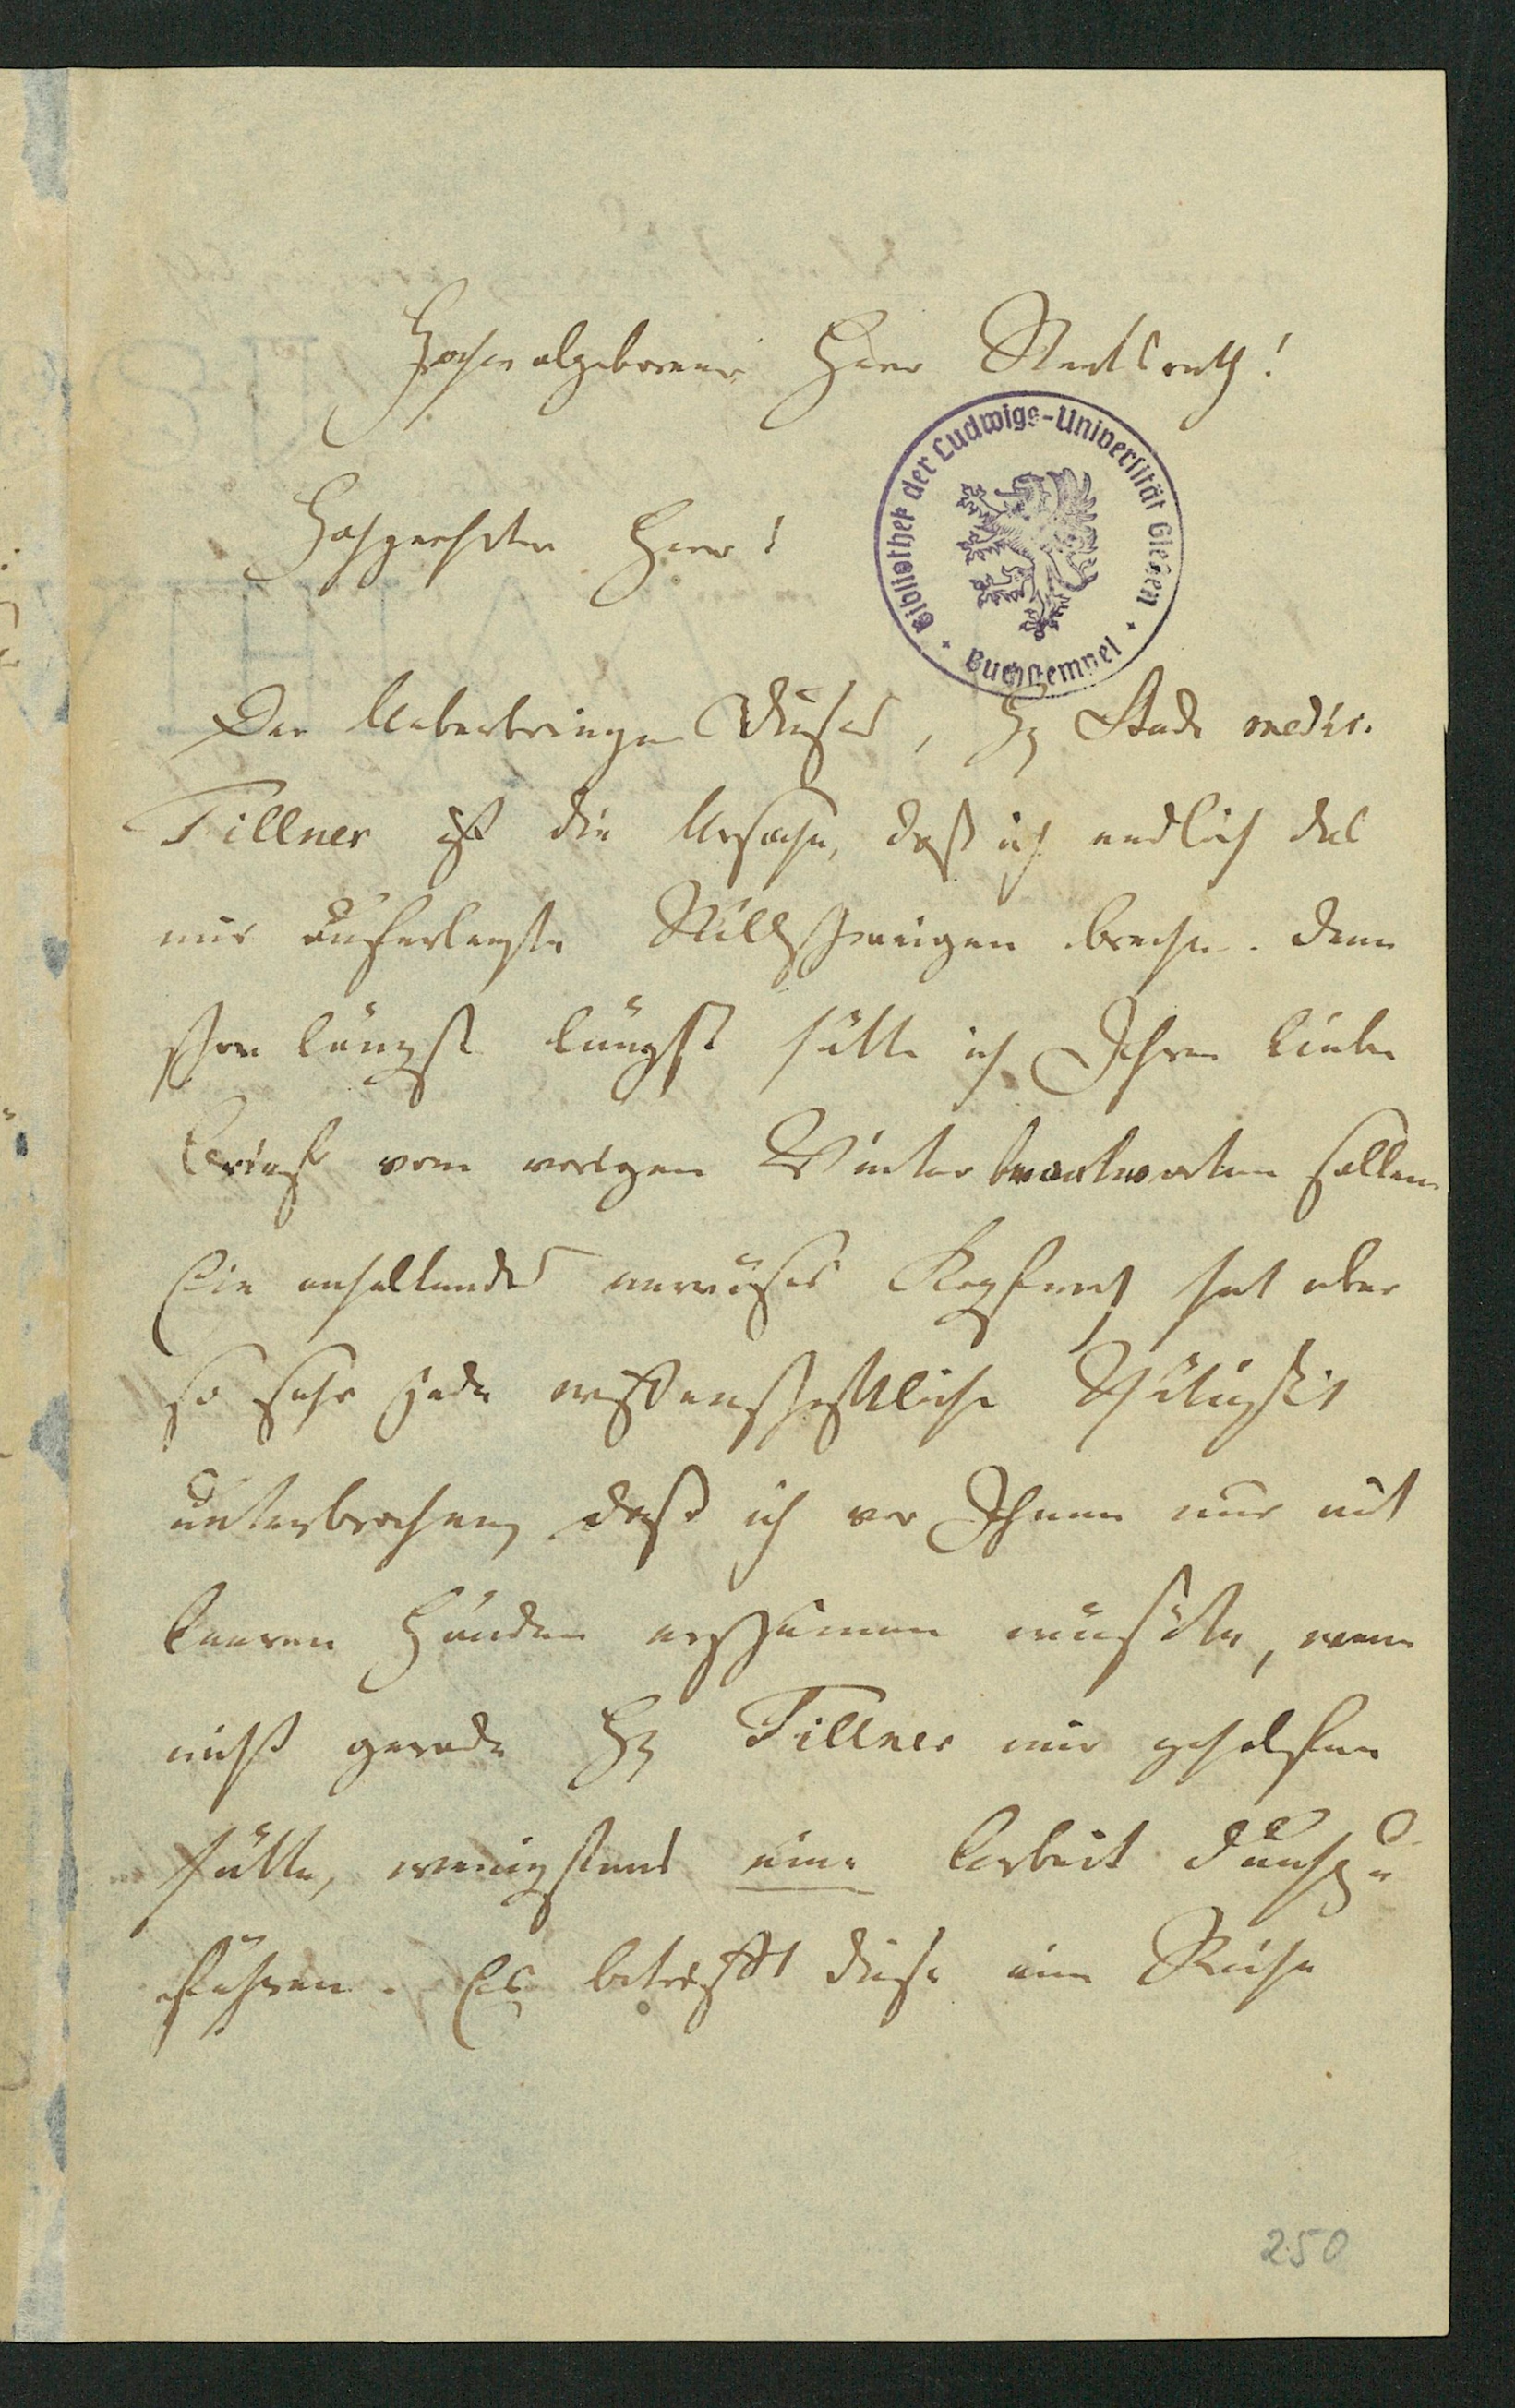 Hochwolgeborener Herr Staatsrath!
Bibliothek der Ludwigs-Universität Gießen
Buchstempel
Hochgeehrter Herr!
Der Ueberbringer Dieses, H. Stud. medic.
Tillner ist die Ursache, daß ich endlich das
mir auferlegte Stillschweigen breche. Denn
schon längst längst hätte ich Ihren lieben
Brief vom vorigen Winter beantworten sollen.
Ein anhaltendes nervöses Kopfweh hat aber
so sehr jede wissenschaftliche Thätigkeit
unterbrochen, daß ich vor Ihnen nur mit
leeren Händen erscheinen müsste, wenn
nicht gerade H. Tillner mir geholfen
hätte, wenigstens eine Arbeit durchzu
führen. Es betrifft diese eine Reihe
250